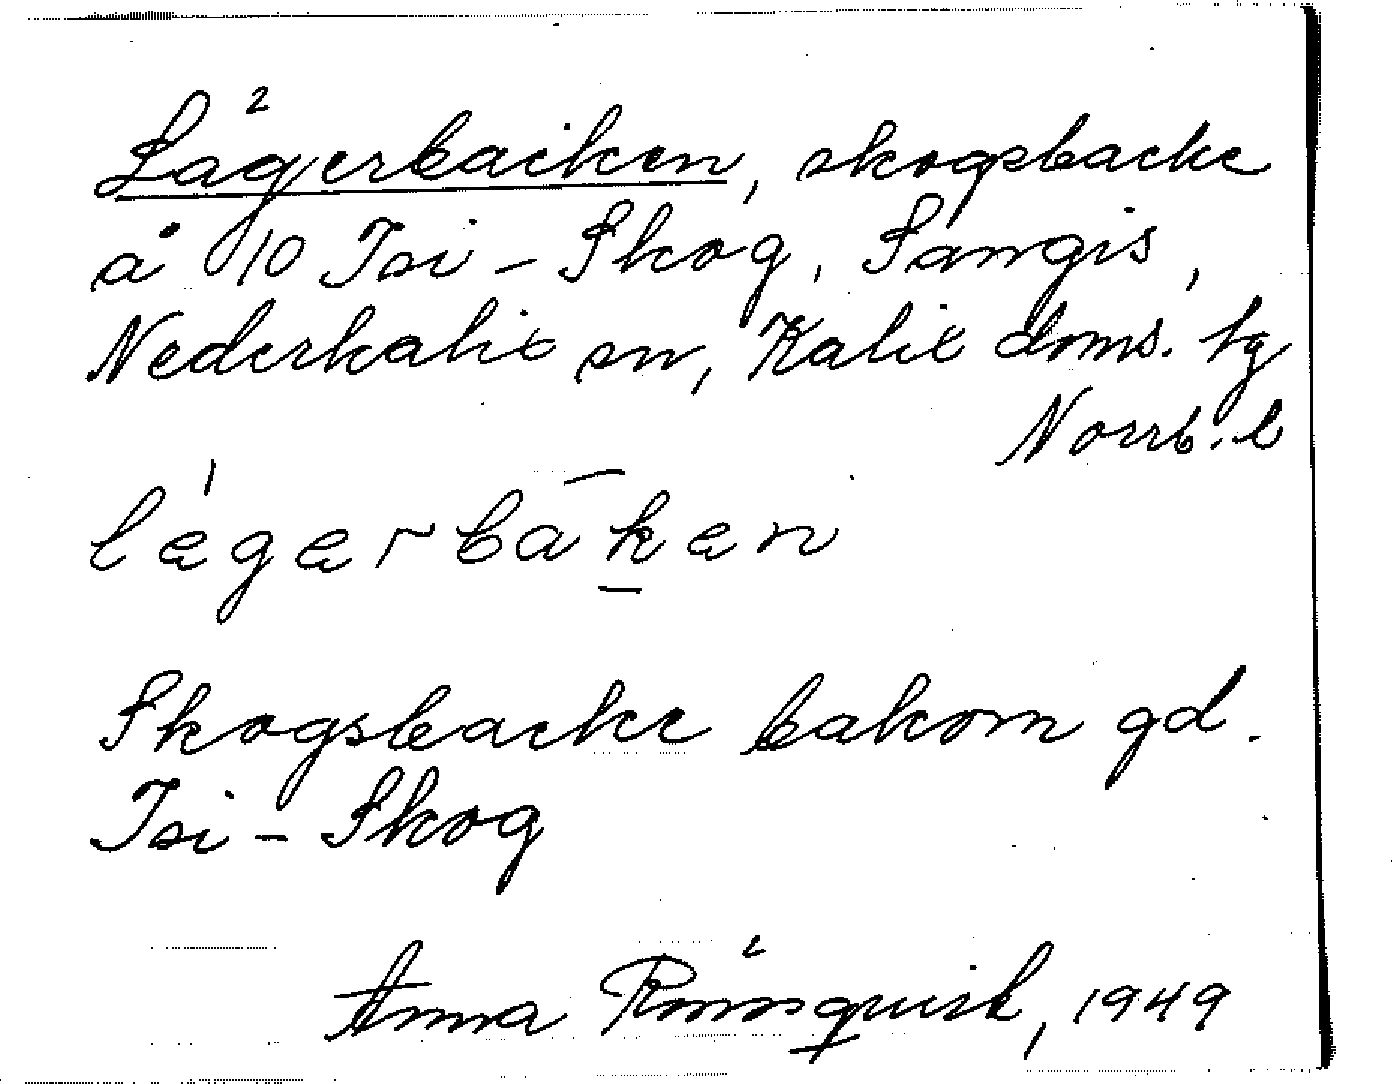 Lägerbacken, skogsbacke
å 10 Isi - Skog, Sangis,
Nederkalix sn, Kalix doms. tg
Norrb. l
lægærbāk̲æn
Skogsbacke bakom gd.
Isi - Skog
Anna Rönnqvist, 1949